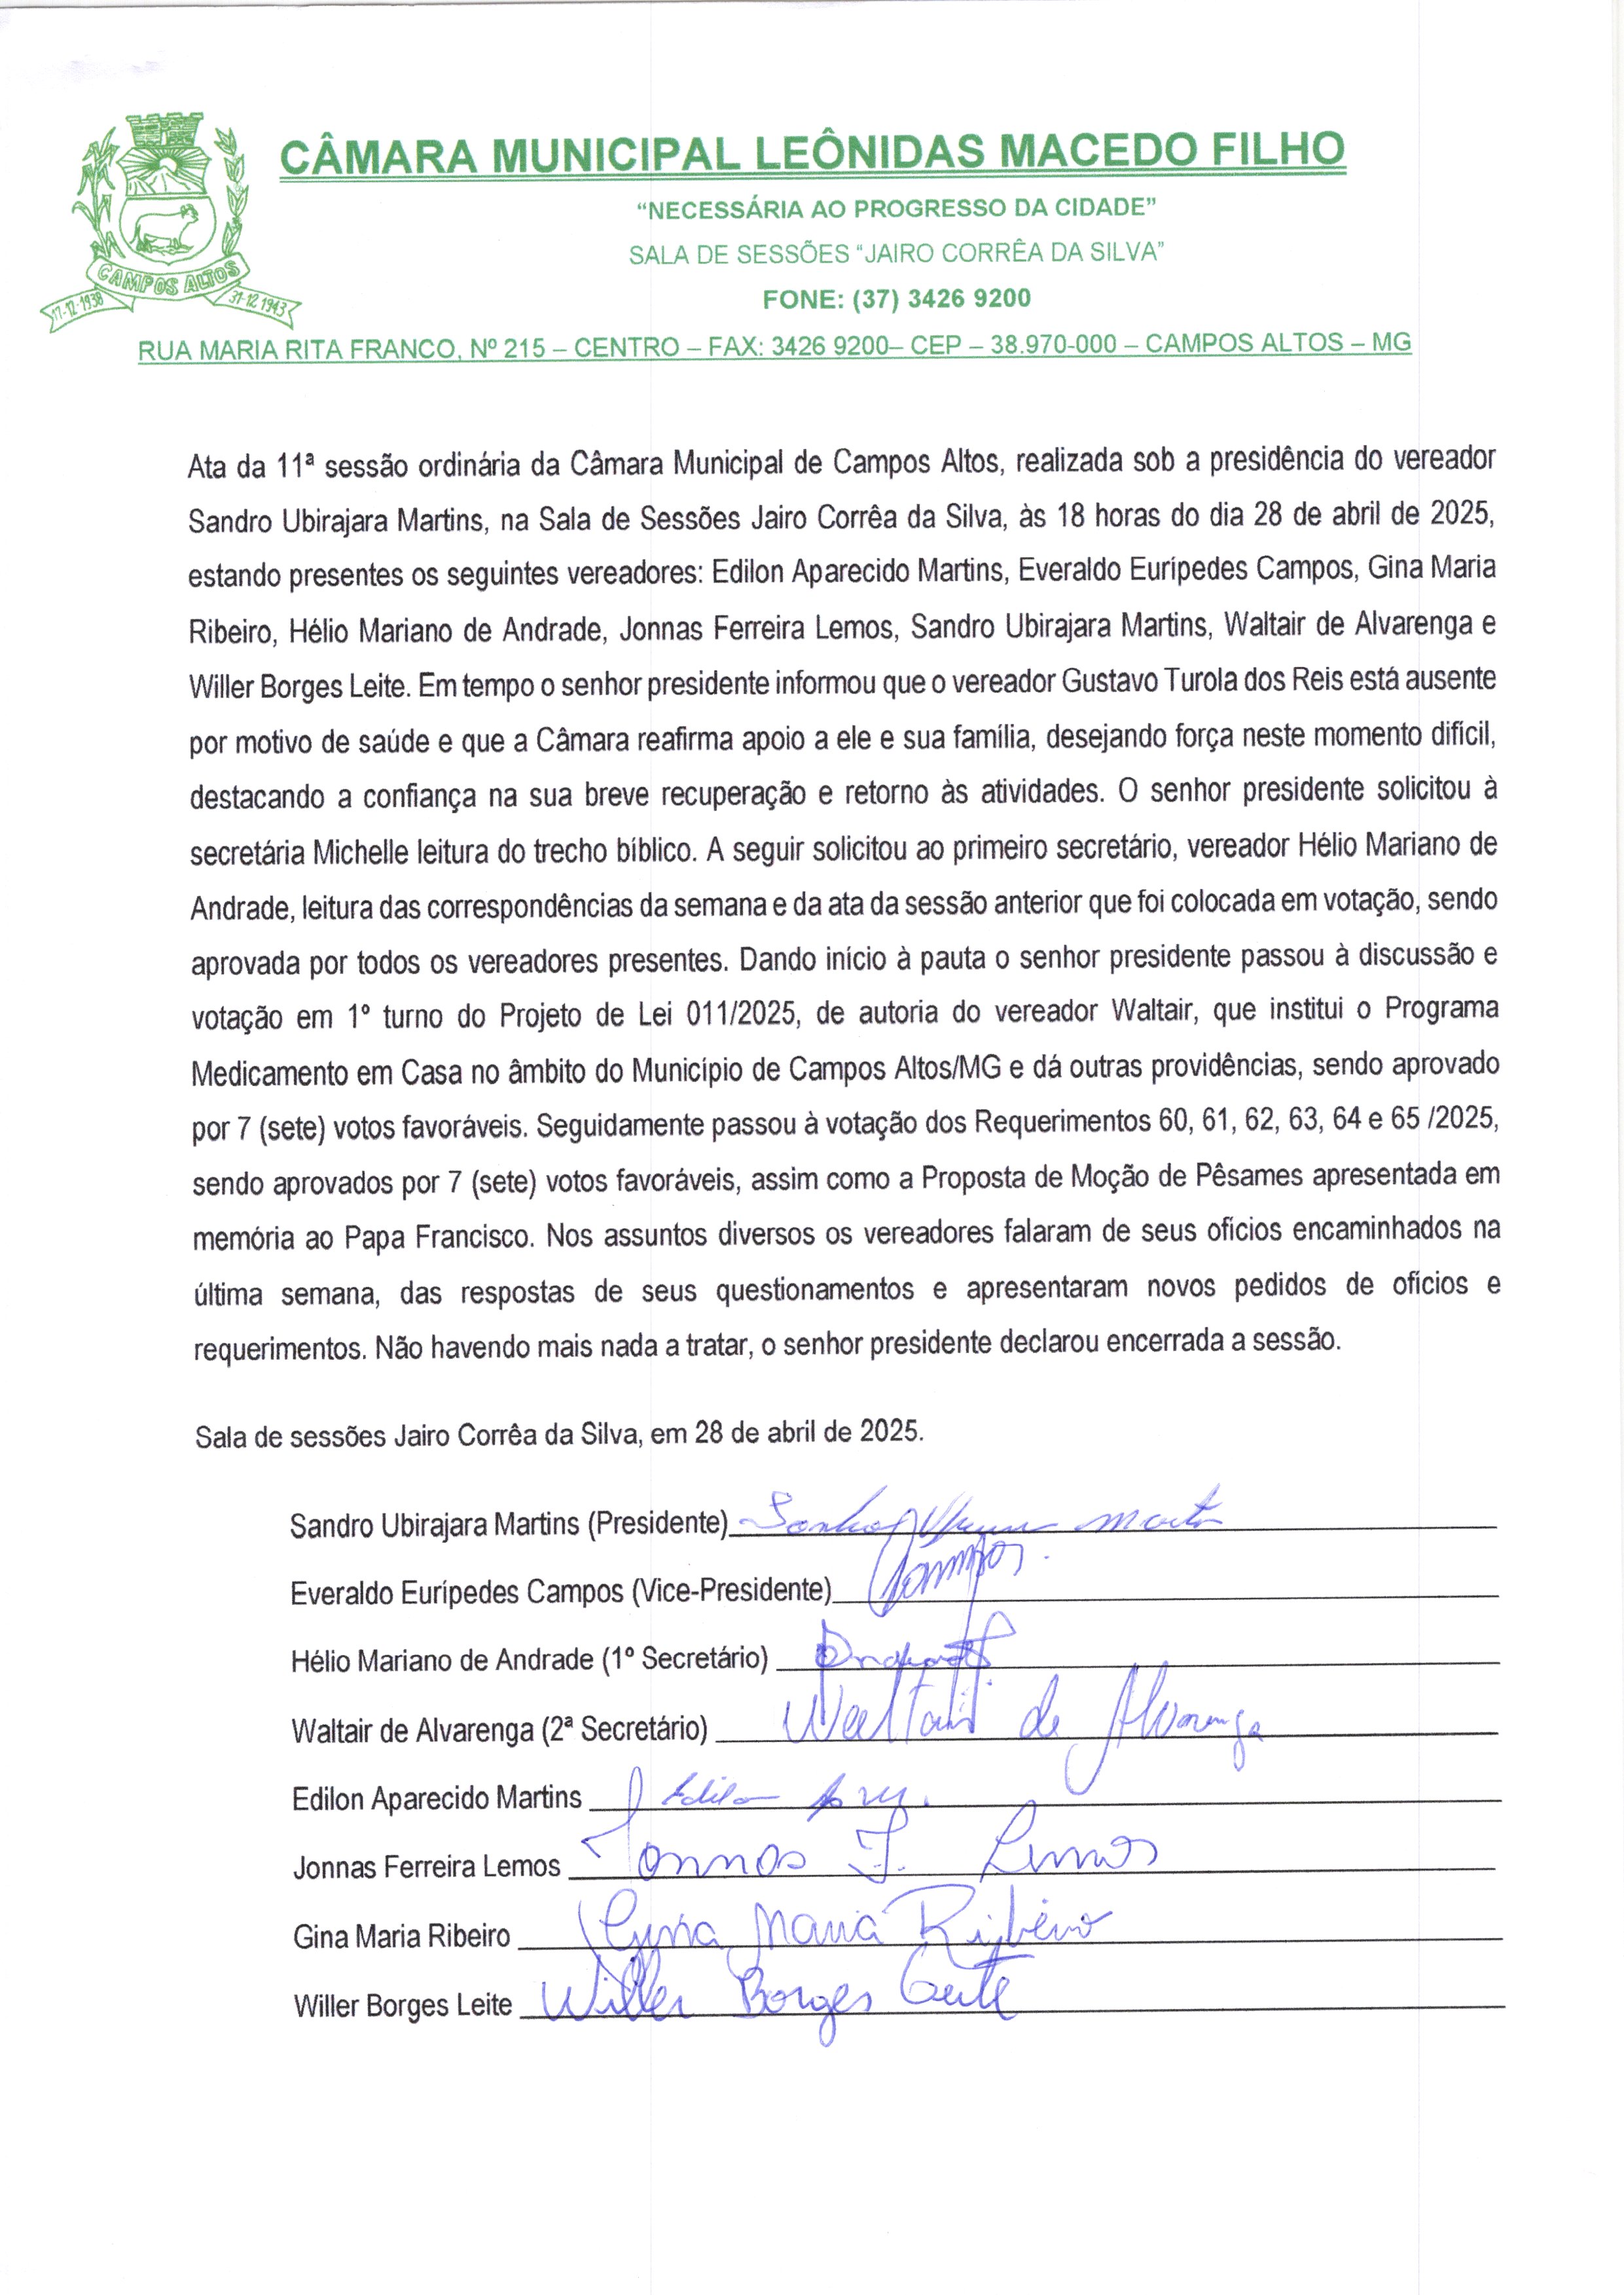 CÂMARA MUNICIPAL LEÔNIDAS MACEDO FILHO
“NECESSÁRIA AO PROGRESSO DA CIDADE”
SALA DE SESSÕES “JAIRO CORRÊA DA SILVA”
FONE: (37) 3426 9200
CAMPOS ALTOS
17-12-1938
31-12 1943
RUA MARIA RITA FRANCO, Nº 215 – CENTRO – FAX: 3426 9200– CEP – 38.970-000 – CAMPOS ALTOS – MG
Ata da 11ª sessão ordinária da Câmara Municipal de Campos Altos, realizada sob a presidência do vereador
Sandro Ubirajara Martins, na Sala de Sessões Jairo Corrêa da Silva, às 18 horas do dia 28 de abril de 2025,
estando presentes os seguintes vereadores: Edilon Aparecido Martins, Everaldo Eurípedes Campos, Gina Maria
Ribeiro, Hélio Mariano de Andrade, Jonnas Ferreira Lemos, Sandro Ubirajara Martins, Waltair de Alvarenga e
Willer Borges Leite. Em tempo o senhor presidente informou que o vereador Gustavo Turola dos Reis está ausente
por motivo de saúde e que a Câmara reafirma apoio a ele e sua família, desejando força neste momento difícil,
destacando a confiança na sua breve recuperação e retorno às atividades. O senhor presidente solicitou à
secretária Michelle leitura do trecho bíblico. A seguir solicitou ao primeiro secretário, vereador Hélio Mariano de
Andrade, leitura das correspondências da semana e da ata da sessão anterior que foi colocada em votação, sendo
aprovada por todos os vereadores presentes. Dando início à pauta o senhor presidente passou à discussão e
votação em 1º turno do Projeto de Lei 011/2025, de autoria do vereador Waltair, que institui o Programa
Medicamento em Casa no âmbito do Município de Campos Altos/MG e dá outras providências, sendo aprovado
por 7 (sete) votos favoráveis. Seguidamente passou à votação dos Requerimentos 60, 61, 62, 63, 64 e 65 /2025,
sendo aprovados por 7 (sete) votos favoráveis, assim como a Proposta de Moção de Pêsames apresentada em
memória ao Papa Francisco. Nos assuntos diversos os vereadores falaram de seus ofícios encaminhados na
última semana, das respostas de seus questionamentos e apresentaram novos pedidos de ofícios e
requerimentos. Não havendo mais nada a tratar, o senhor presidente declarou encerrada a sessão.
Sala de sessões Jairo Corrêa da Silva, em 28 de abril de 2025.
Sandro Ubirajara Martins (Presidente)
Everaldo Eurípedes Campos (Vice-Presidente) Campos.
Hélio Mariano de Andrade (1º Secretário)
Waltair de Alvarenga (2ª Secretário) Waltair de Alvarenga
Edilon Aparecido Martins Edilon
Jonnas Ferreira Lemos Jonnas F. Lemos
Gina Maria Ribeiro Gina Maria Ribeiro
Willer Borges Leite Willer Borges Leite